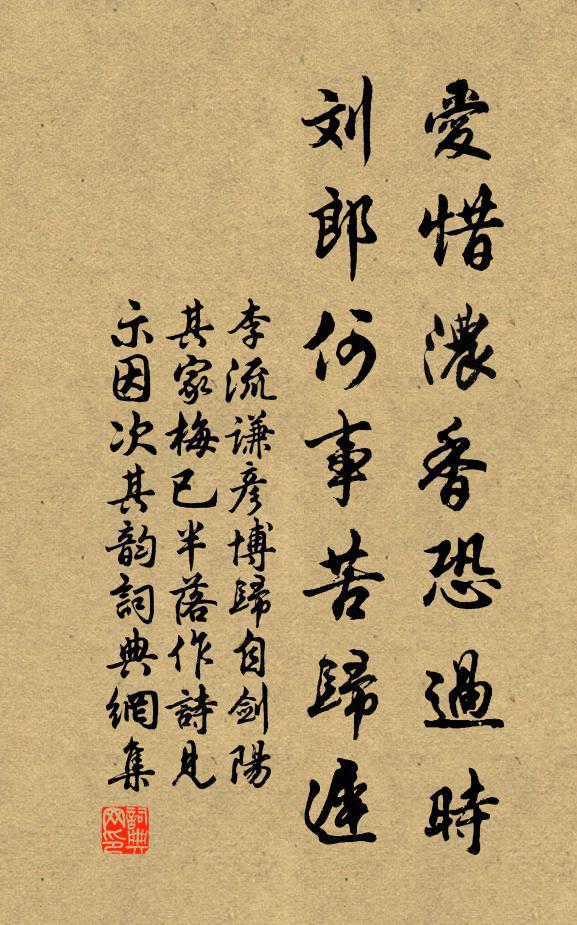 愛惜濃香恐過時
刘郎何事苦歸遲
李流謙彦博歸自劍陽
其家梅已半落作詩見
示因次其韵詞典網集
詞典网印